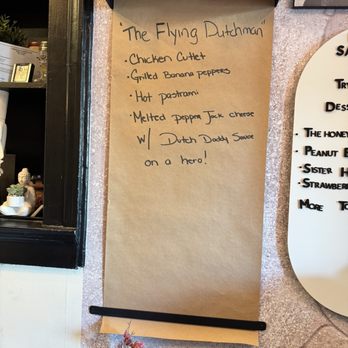 "The Flying Dutchman"
• Chicken Cutlet
• Grilled Banana peppers
• Hot pastrami
• Melted pepper Jack cheese
w/ Dutch Daddy Sauce
on a hero!
Des
• The honey
• Peanut
• Sister
• Strawberr
More